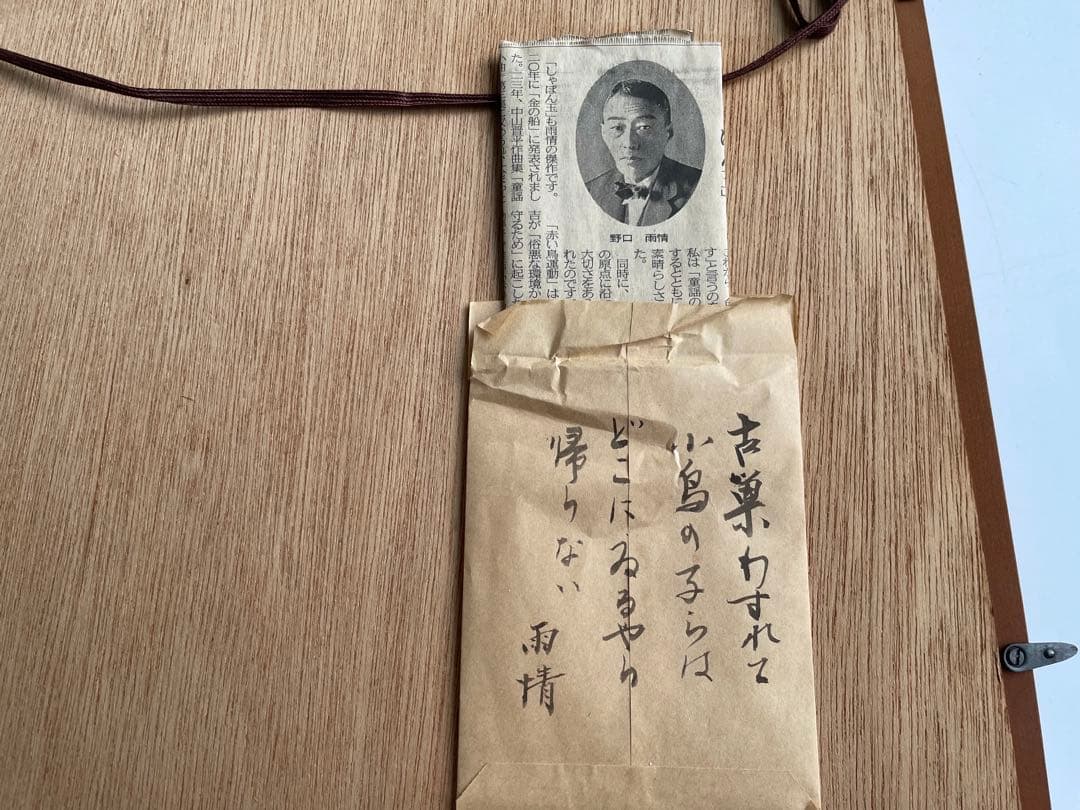 「しゃぼん玉」も雨情の傑作です。
二〇年に「金の船」に発表されまし
た。二三年、中山晋平作曲集「童謡
「赤い鳥運動」は
吉が「俗悪な環境か
守るため」に起こし
野口 雨情
すこと言うの
私は「童謡の
するとともに
素晴らしさ
た。
同時に、
の原点に沿
大切さをあ
れたのです
古巣わすれて
小鳥の子らは
どこにゐるやら
帰らない
雨情